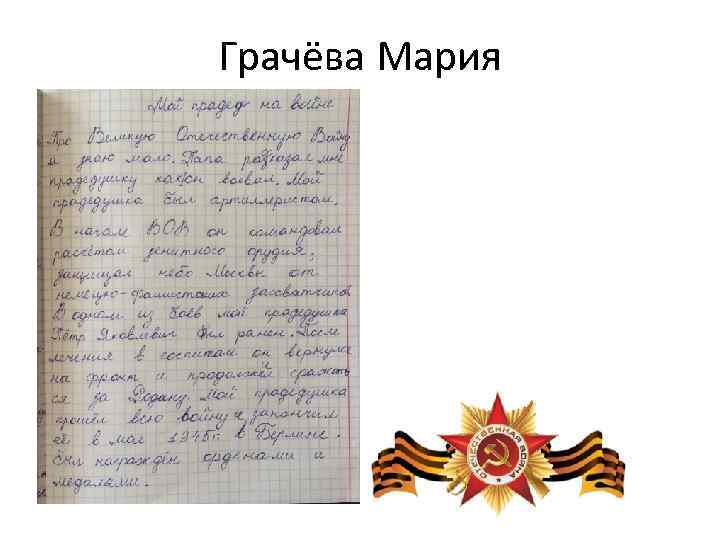 Грачёва Мария
Мой прадед на войне
Про Великую Отечественную Войну
я знаю мало. Папа рассказал мне
прадедушку как он воевал. Мой
прадедушка был артиллеристом.
В начале ВОВ он командовал
расчётом зенитного орудия,
защищал небо Москвы от
немецко-фашистских захватчиков
В одном из боёв мой прадедушка
Пётр Яковлевич был ранен. После
лечения в госпитале он вернулся
на фронт и продолжил сражать
ся за Родину. Мой прадедушка
прошёл всю войну и закончил
её в мае 1945г. в Берлине.
Был награждён орденами и
медалями.
ОТЕЧЕСТВЕННАЯ ВОЙНА